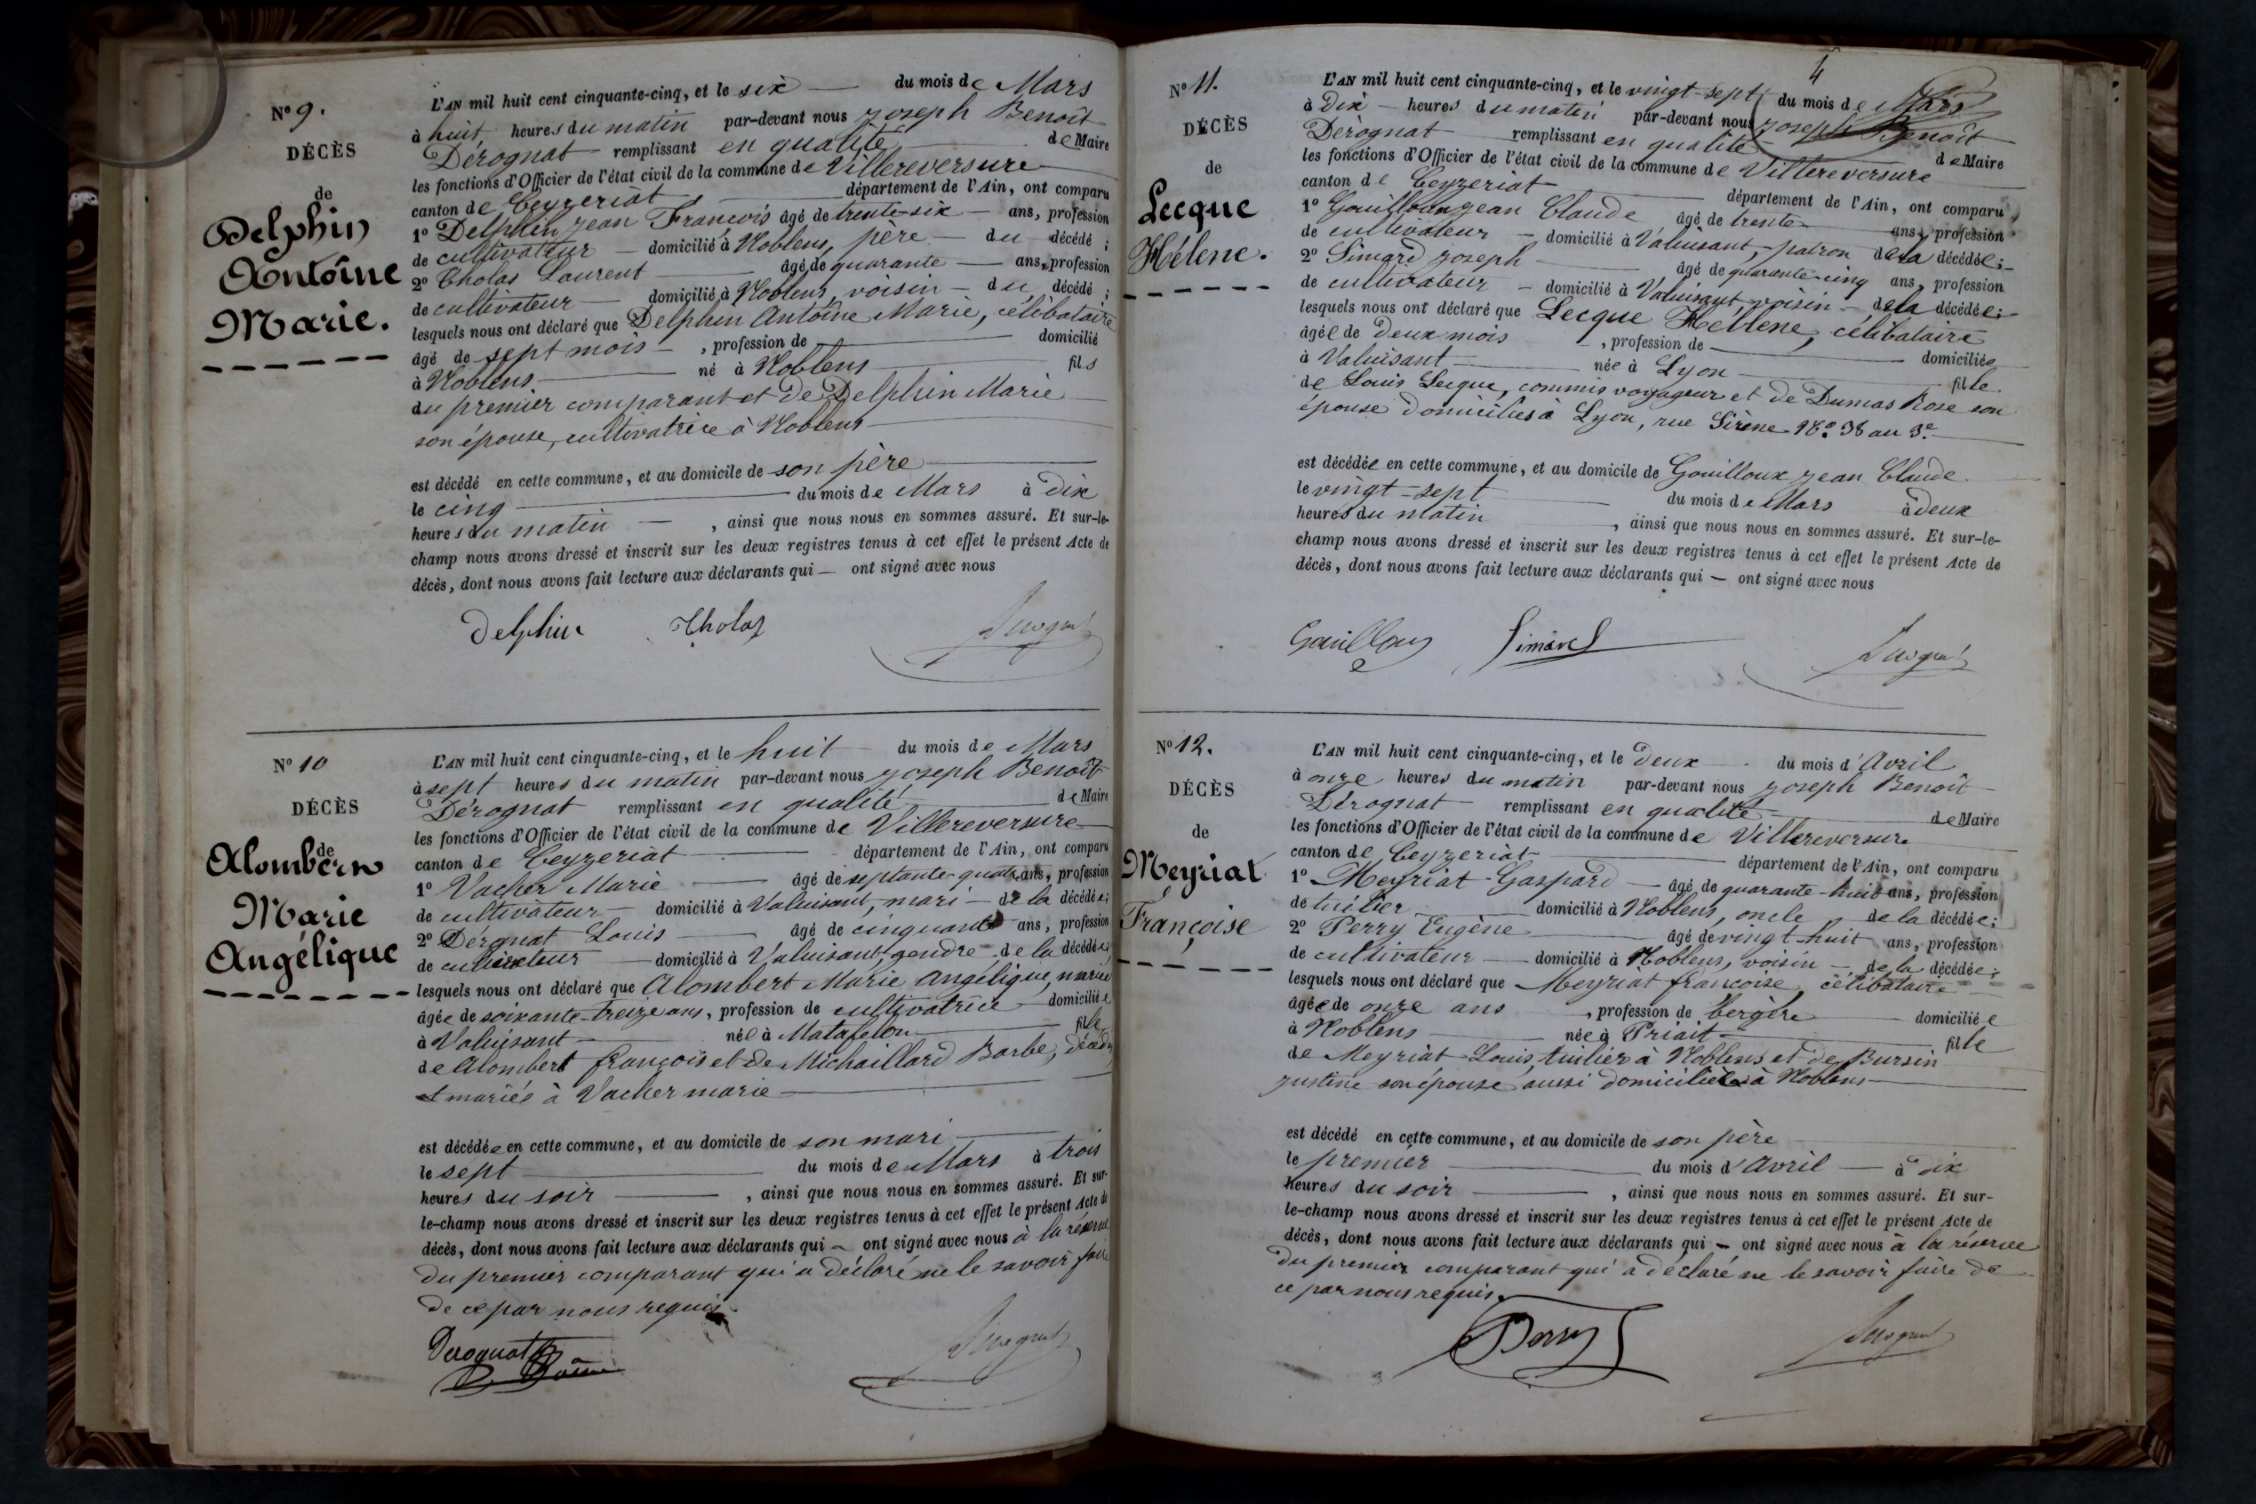 N° 9.
DÉCÈS
de
Delphin
Antoine
Marie.
L'AN mil huit cent cinquante-cinq, et le six du mois de Mars
à huit heures du matin par-devant nous Joseph Benoît
Dérognat remplissant en qualité de Maire
les fonctions d'Officier de l'état civil de la commune de Villereversure
canton de Ceyzeriat département de l'Ain, ont comparu
1° Delphin Jean François âgé de trente-six ans, profession
de cultivateur domicilié à Noblens, père du décédé;
2° Tholas Laurent âgé de quarante ans, profession
de cultivateur domicilié à Noblens, voisin du décédé;
lesquels nous ont déclaré que Delphin Antoine Marie, célibataire
âgé de sept mois, profession de domicilié
à Noblens né à Noblens fils
du premier comparant et de Delphin Marie
son épouse, cultivatrice à Noblens
est décédé en cette commune, et au domicile de son père
le cinq du mois de Mars à dix
heures du matin, ainsi que nous nous en sommes assuré. Et sur-le-
champ nous avons dressé et inscrit sur les deux registres tenus à cet effet le présent Acte de
décès, dont nous avons fait lecture aux déclarants qui ont signé avec nous
Delphin Tholas
N° 10
DÉCÈS
de
Alombert
Marie
Angélique
L'AN mil huit cent cinquante-cinq, et le huit du mois de Mars
à sept heures du matin par-devant nous Joseph Benoît
Dérognat remplissant en qualité de Maire
les fonctions d'Officier de l'état civil de la commune de Villereversure
canton de Ceyzeriat département de l'Ain, ont comparu
1° Vacher Marie âgé de septante-quatre ans, profession
de cultivateur domicilié à Valuisant, mari de la décédée;
2° Dérognat Louis âgé de cinquante ans, profession
de cultivateur domicilié à Valuisant, gendre de la décédée;
lesquels nous ont déclaré que Alombert Marie Angélique, mariée
âgée de soixante-treize ans, profession de cultivatrice domiciliée
à Valuisant née à Matafelon fille
de Alombert françois et de Michaillard Barbe, décédés
et mariés à Vacher marie
est décédée en cette commune, et au domicile de son mari
le sept du mois de Mars à trois
heures du soir, ainsi que nous nous en sommes assuré. Et sur-
le-champ nous avons dressé et inscrit sur les deux registres tenus à cet effet le présent Acte de
décès, dont nous avons fait lecture aux déclarants qui ont signé avec nous à la réserve
du premier comparant qui a déclaré ne le savoir faire
de ce par nous requis.
Derognat
4
N° 11.
DÉCÈS
de
Lecque
Hélene.
L'AN mil huit cent cinquante-cinq, et le vingt-sept du mois de Mars
à dix heures du matin par-devant nous Joseph Benoît
Dérognat remplissant en qualité de Maire
les fonctions d'Officier de l'état civil de la commune de Villereversure
canton de Ceyzeriat département de l'Ain, ont comparu
1° Gouilloux Jean Claude âgé de trente ans, profession
de cultivateur domicilié à Valuisant, patron de la décédée;
2° Simard Joseph âgé de quarante-cinq ans, profession
de cultivateur domicilié à Valuisant, voisin de la décédée;
lesquels nous ont déclaré que Lecque Hélène, célibataire
âgée de deux mois, profession de domiciliée
à Valuisant née à Lyon fille
de Louis Lecque, commis voyageur et de Dumas Rose son
épouse domiciliés à Lyon, rue Sirène N° 38 au 3e
est décédée en cette commune, et au domicile de Gouilloux Jean Claude
le vingt-sept du mois de Mars à deux
heures du matin, ainsi que nous nous en sommes assuré. Et sur-le-
champ nous avons dressé et inscrit sur les deux registres tenus à cet effet le présent Acte de
décès, dont nous avons fait lecture aux déclarants qui ont signé avec nous
Gouilloux Simard
N° 12.
DÉCÈS
de
Meyriat
Françoise
L'AN mil huit cent cinquante-cinq, et le deux du mois d'Avril
à onze heures du matin par-devant nous Joseph Benoît
Dérognat remplissant en qualité de Maire
les fonctions d'Officier de l'état civil de la commune de Villereversure
canton de Ceyzeriat département de l'Ain, ont comparu
1° Meyriat Gaspard âgé de quarante-huit ans, profession
de tuilier domicilié à Noblens, oncle de la décédée;
2° Perry Eugène âgé de vingt-huit ans, profession
de cultivateur domicilié à Noblens, voisin de la décédée;
lesquels nous ont déclaré que Meyriat françoise, célibataire
âgée de onze ans, profession de bergère domiciliée
à Noblens née à Priait fille
de Meyriat Louis, tuilier à Noblens et de Bursin
Justine son épouse aussi domiciliée à Noblens
est décédé en cette commune, et au domicile de son père
le premier du mois d'Avril à six
heures du soir, ainsi que nous nous en sommes assuré. Et sur-
le-champ nous avons dressé et inscrit sur les deux registres tenus à cet effet le présent Acte de
décès, dont nous avons fait lecture aux déclarants qui ont signé avec nous à la réserve
du premier comparant qui a déclaré ne le savoir faire de
ce par nous requis.
Perry